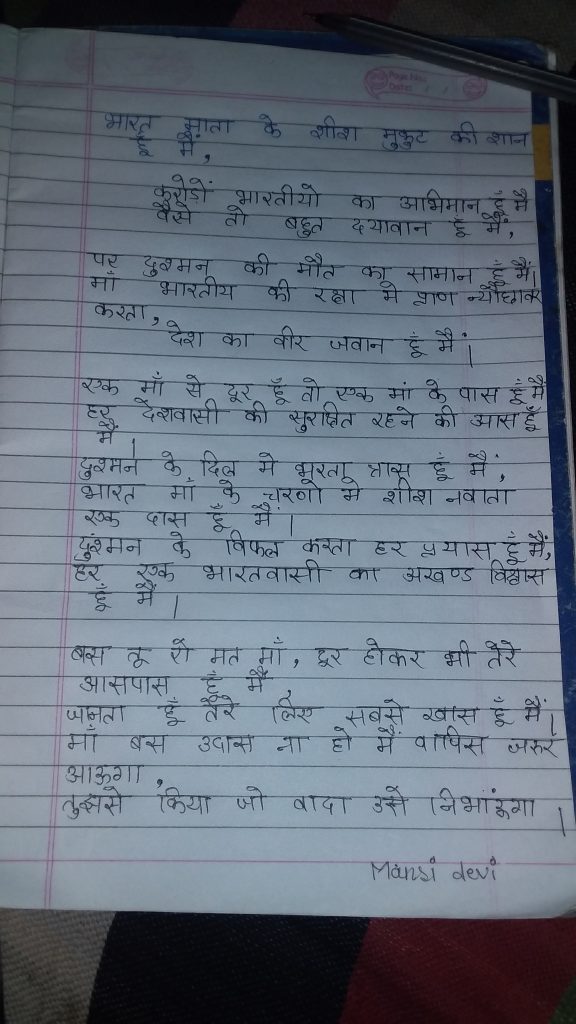 Page No.
Date
भारत माता के शीश मुकुट की शान
हूँ मैं,
करोड़ों भारतीयो का अभिमान हूँ मैं
वैसे तो बहुत दयावान हूँ मैं,
पर दुश्मन की मौत का सामान हूँ मैं।
माँ भारतीय की रक्षा मे प्राण न्यौछावर
करता,
देश का वीर जवान हूँ मैं।
एक माँ से दूर हूँ तो एक मां के पास हूँ मैं
हर देशवासी की सुरक्षित रहने की आस हूँ
मैं।
दुश्मन के दिल मे भरता त्रास हूँ मैं,
भारत माँ के चरणो मे शीश नवाता
एक दास हूँ मैं।
दुश्मन के विफल करता हर प्रयास हूँ मैं,
हर एक भारतवासी का अखण्ड विश्वास
हूँ मैं।
बस तू रो मत माँ, दूर होकर भी तेरे
आसपास हूँ मैं,
जानता हूँ तेरे लिए सबसे खास हूँ मैं।
माँ बस उदास ना हो मैं वापिस जरुर
आऊगा,
तुझसे किया जो वादा उसे निभांऊगा।
Mansi devi